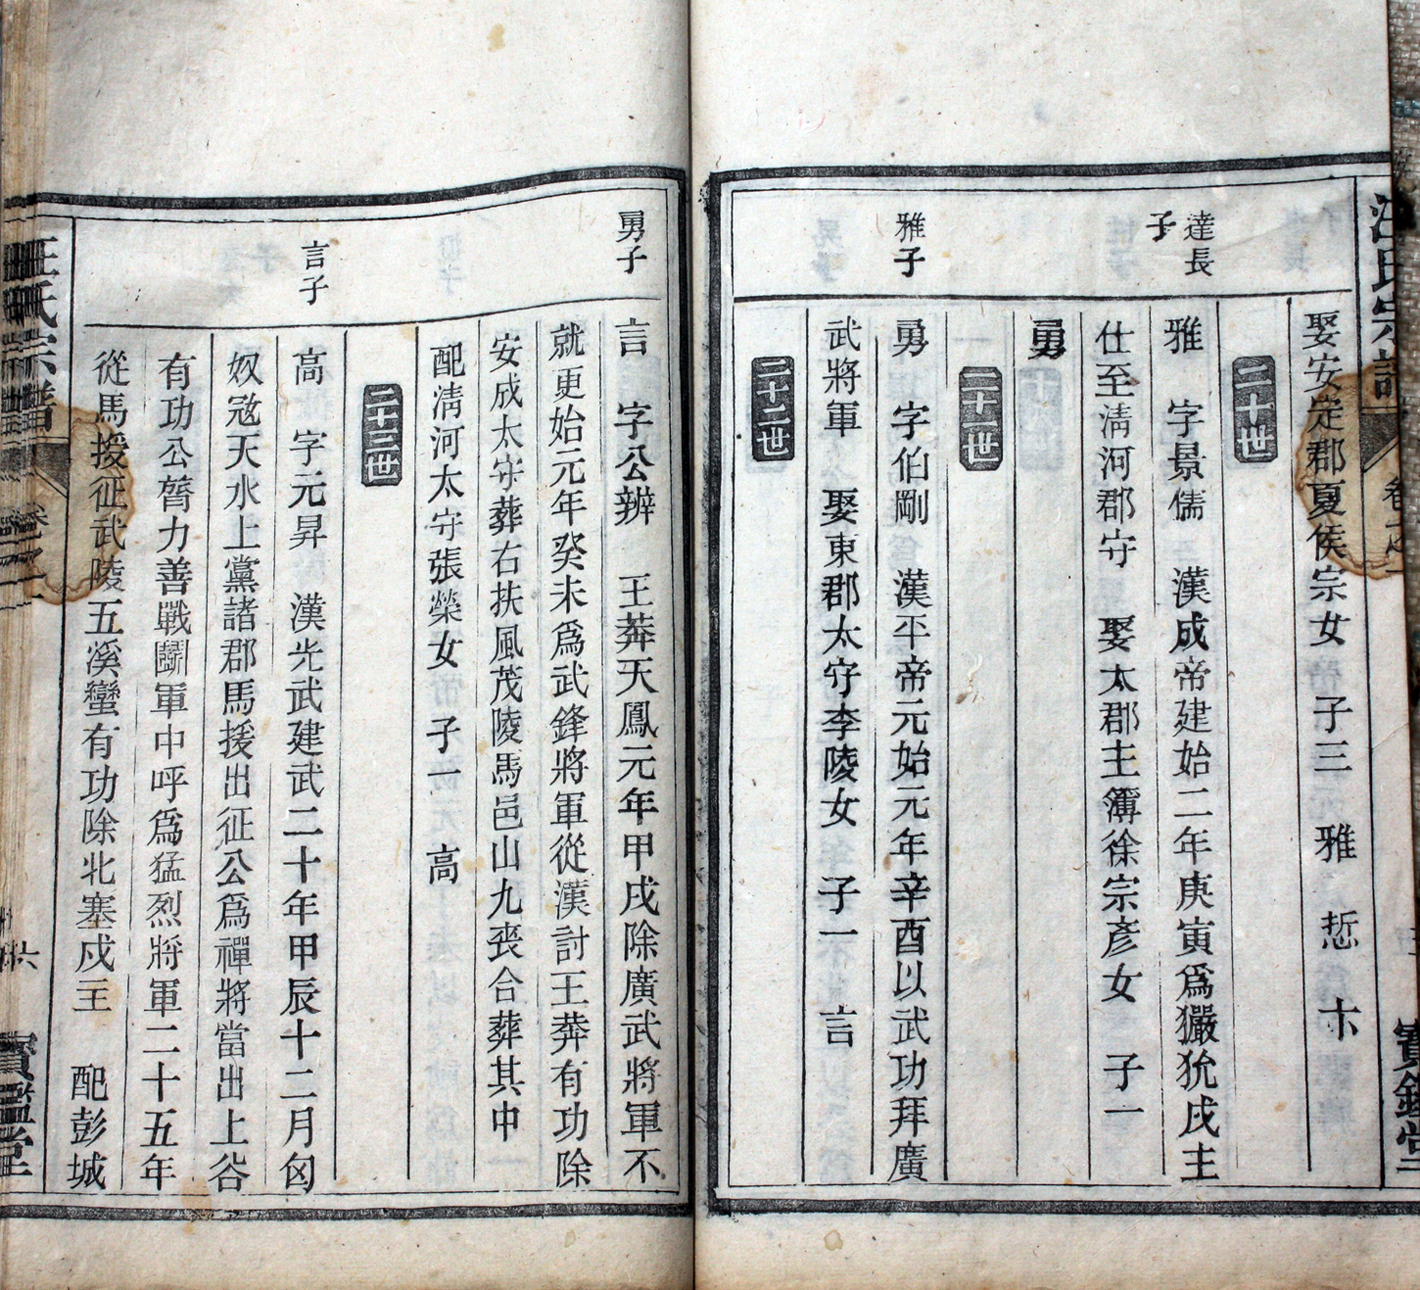 汪氏宗譜
卷之一
寶鑑堂
娶安定郡夏侯宗女 子三 雅 悊 卞
二十世
達長子
雅 字景儒 漢成帝建始二年庚寅爲玁狁戍主
仕至淸河郡守 娶太郡主簿徐宗彥女 子一
勇
二十一世
雅子
勇 字伯剛 漢平帝元始元年辛酉以武功拜廣
武將軍 娶東郡太守李陵女 子一 言
二十二世
勇子
言 字公辨 王莽天鳳元年甲戌除廣武將軍不
就更始元年癸未爲武鋒將軍從漢討王莽有功除
安成太守葬右扶風茂陵馬邑山九喪合葬其中
配淸河太守張榮女 子一 高
二十三世
言子
高 字元昇 漢光武建武二十年甲辰十二月匈
奴寇天水上黨諸郡馬援出征公爲禆將當出上谷
有功公膂力善戰鬭軍中呼爲猛烈將軍二十五年
從馬援征武陵五溪蠻有功除北塞戍主 配彭城
汪氏宗譜
卷之一
六
寶鑑堂